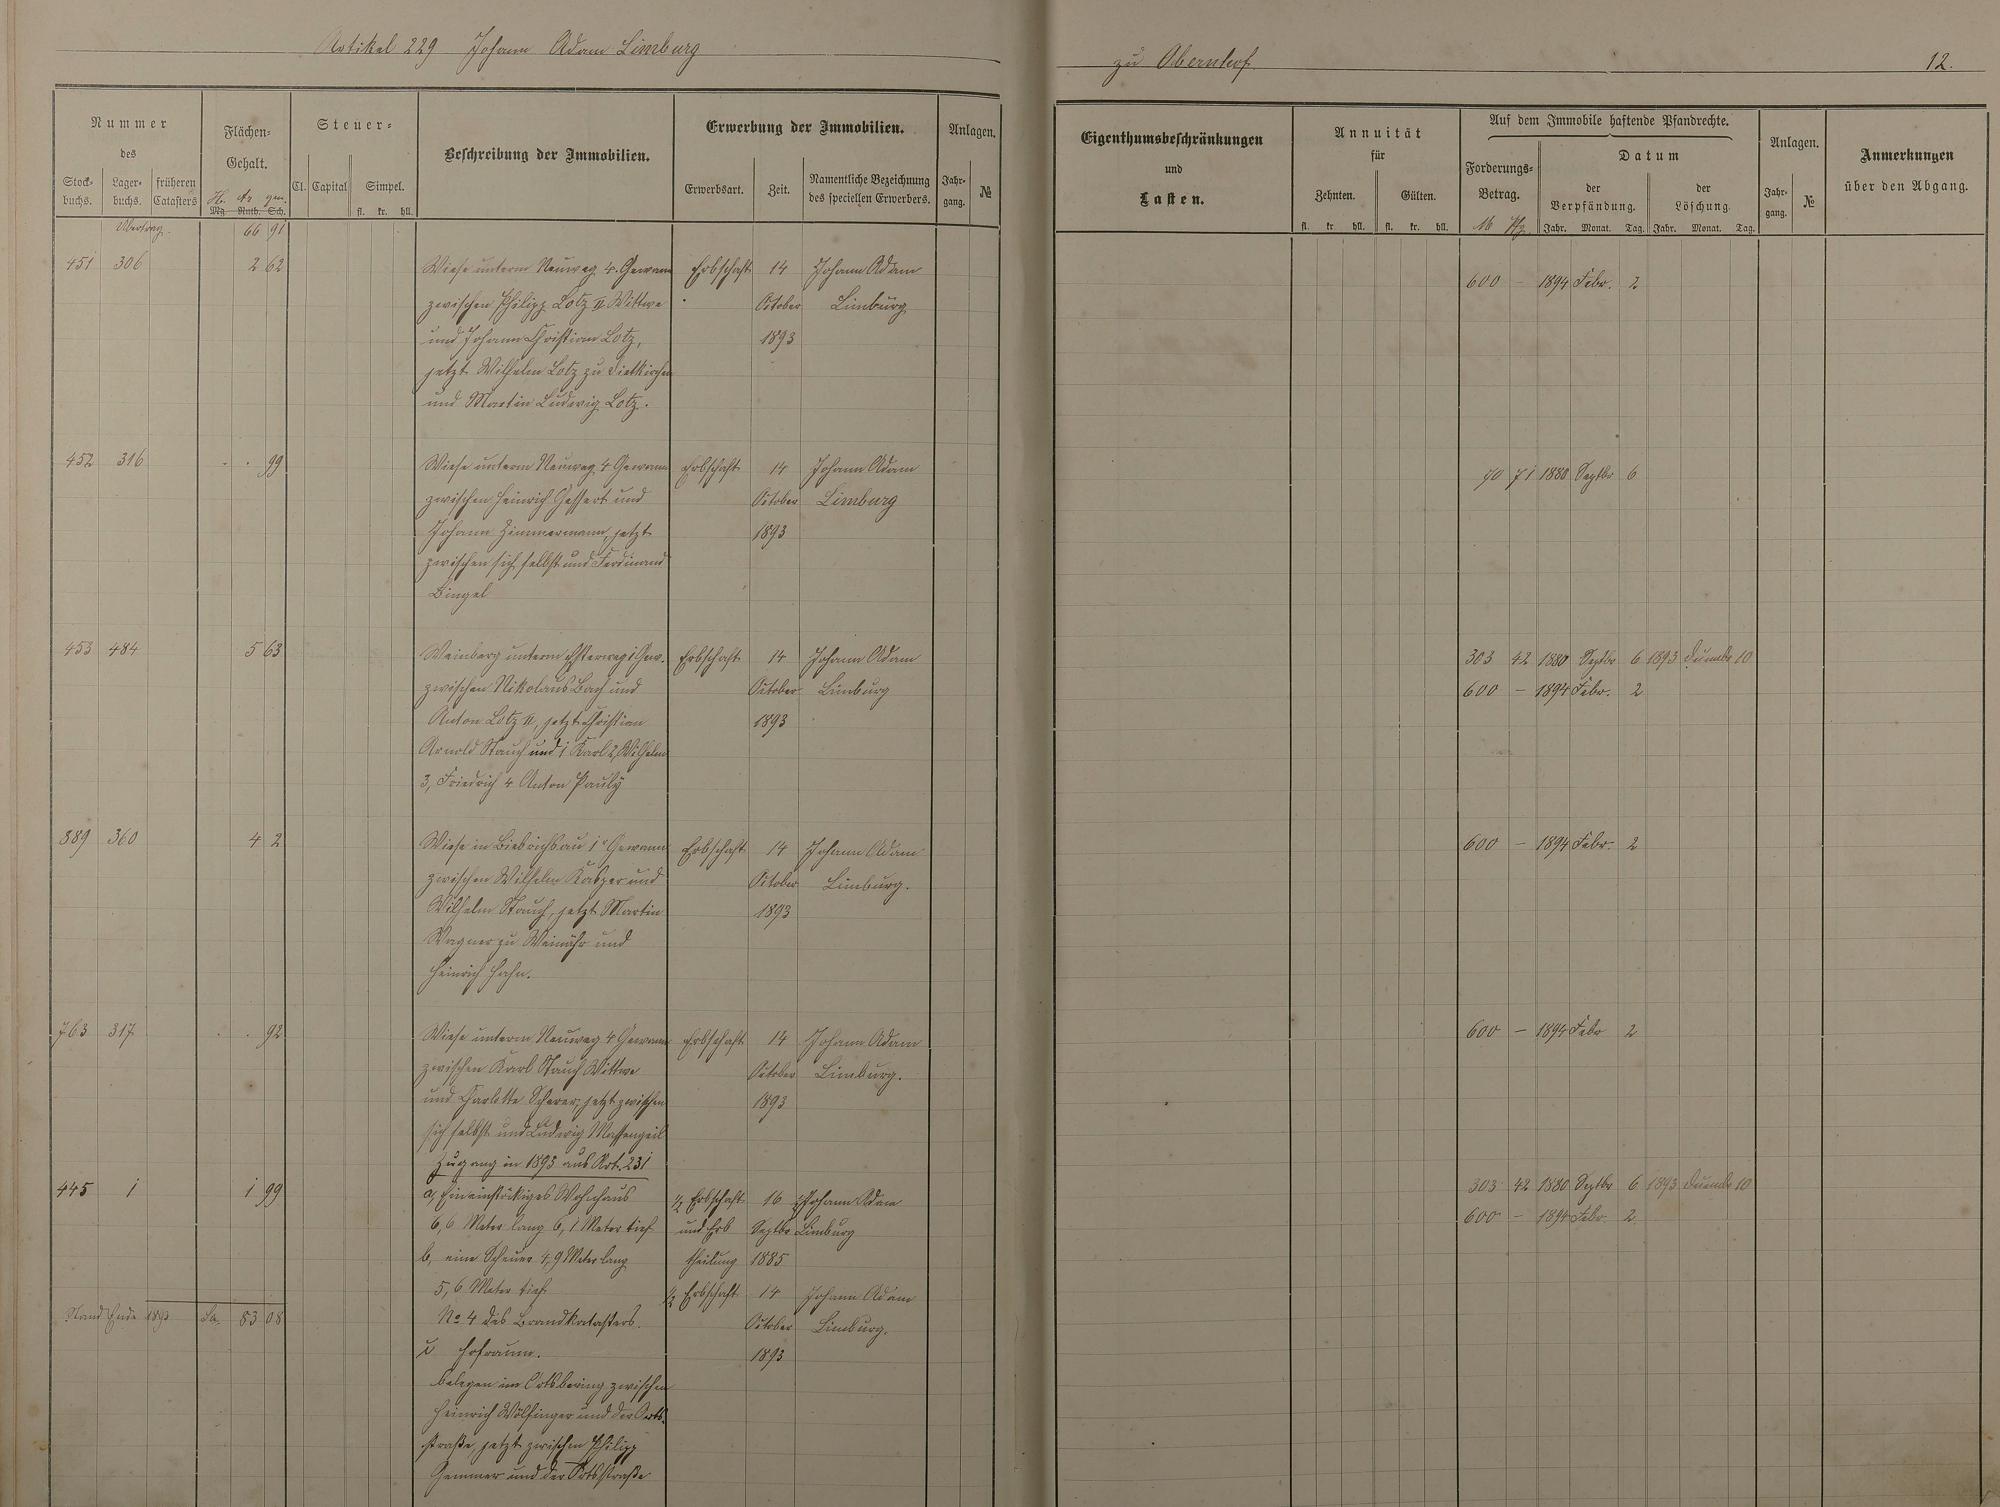 Artikel 229 Johann Adam Limburg
zu Obernhof.
12.
Nummer
des
Stock-
buchs.
Lager-
buchs.
früheren
Catasters
Flächen-
Gehalt.
H. Ar qm.
Mg Ruth. Sch.
Steuer-
Cl. Capital Simpel.
fl. kr. hll.
Beschreibung der Immobilien.
Erwerbung der Immobilien.
Erwerbsart. Zeit.
Namentliche Bezeichnung
des speciellen Erwerbers.
Anlagen.
Jahr-
gang.
№
Eigenthumsbeschränkungen
und
Lasten.
Annuität
für
Zehnten. Gülten.
fl. kr hll. fl. kr. hll.
Auf dem Immobile haftende Pfandrechte.
Forderungs-
Betrag.
M Pfg.
Datum
der
Verpfändung.
der
Löschung.
Jahr. Monat. Tag. Jahr. Monat. Tag.
Anlagen.
Jahr-
gang.
№
Anmerkungen
über den Abgang.
Übertrag. 66 91
451 306 2 62 Wiese unterm Neuweg 4. Gewann Erbschaft 14 Johann Adam 600 – 1894 Febr. 2
zwischen Philipp Lotz II Wittwe October Limburg
und Johann Christian Lotz, 1893
jetzt Wilhelm Lotz zu Dietkirchen
und Martin Ludwig Lotz.
452 316 . . 99 Wiese unterm Neuweg 4 Gewann Erbschaft 14 Johann Adam 90 71 1880 Septbr 6
zwischen Heinrich Gessert und October Limburg
Johann Zimmermann, jetzt 1893
zwischen sich selbst und Ferdinand
Bingel
453 484 5 63 Weinberg unterm 1 Gew. Erbschaft 14 Johann Adam 303 42 1880 Septbr 6 1893 10
zwischen Nikolaus Bach und October Limburg 600 – 1894 Febr. 2
Anton Lotz II, jetzt Christian 1893
Arnold Stauch und 1 Karl 2, Wilhelm
3, Friedrich 4 Anton Pauly
889 360 4 2 Wiese in 1r Gewann Erbschaft 14 Johann Adam 600 – 1894 Febr. 2
zwischen Wilhelm Kasper und October Limburg.
Wilhelm Stauch, jetzt Martin 1893
Wagner zu Weinähr und
Heinrich Hahn.
763 317 . . 92 Wiese unterm Neuweg 4 Gewann Erbschaft 14 Johann Adam 600 – 1894 Febr 2
zwischen Karl Stauch Wittwe October Limburg.
und Charlotte Scherer, jetzt zwischen 1893
sich selbst und Ludwig Massengeil
Zugang in 1893 aus Art. 231
445 1 1 99 a, Ein einstöckiges Wohnhaus ½ Erbschaft 16 Johann Adam 303 42 1880 Septbr 6 1893 10
6,6 Meter lang 6,1 Meter tief und Erb Septbr Limburg 600 – 1894 Febr. 2
b, eine Scheuer 4,9 Meter lang theilung 1885
5,6 Meter tief ½ Erbschaft 14 Johann Adam
Stand Ende 1893 Sa. 83 08 No 4 des Brandkatasters. October Limburg.
c Hofraum. 1893
belegen im Ortsbering zwischen
Heinrich Wölfinger und der Orts-
straße, jetzt zwischen Philipp
Gemmer und der Ortsstraße